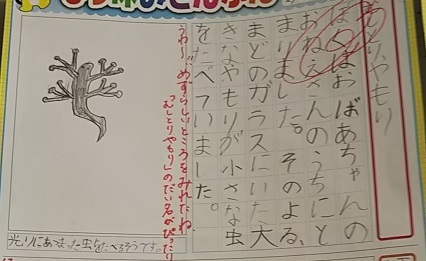 むしとりやもり
ぼくはおばあちゃんの
おねえさんのうちにと
まりました。そのよる、
まどのガラスにいた大
きなやもりが小さな虫
をたべていました。
うわ〜!めずらしいところをみれたわ。
「むしとりやもり」のだい名がぴったり
光りにあつまった虫をたべるそうです。